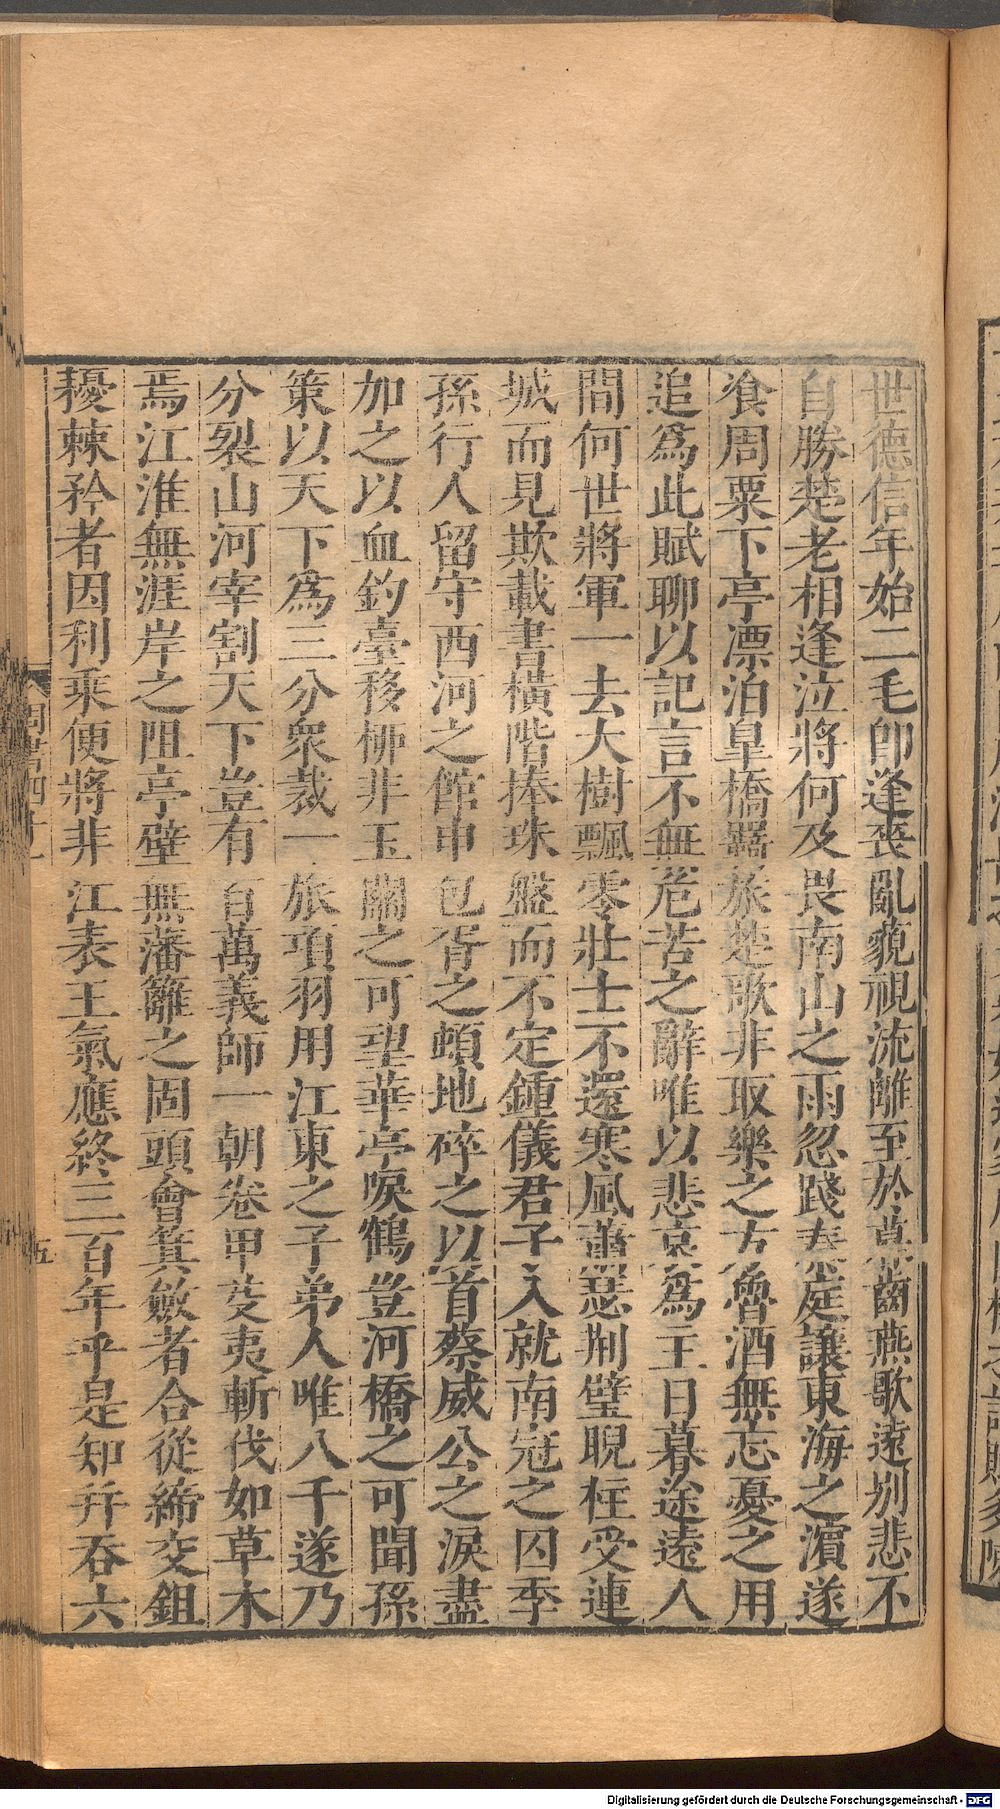 世德信年始二毛卽逢喪亂藐視流離至於暮齒燕歌遠别悲不
自勝楚老相逢泣將何及畏南山之雨忽踐秦庭讓東海之濵遂
飡周粟下亭漂泊臯橋羇旅楚歌非取樂之方魯酒無忘憂之用
追爲此賦聊以記言不無危苦之辭唯以悲哀爲主日暮途遠人
間何世將軍一去大樹飄零壯士不還寒風蕭瑟荆璧睨柱受連
城而見欺載書橫階捧珠盤而不定鍾儀君子入就南冠之囚季
孫行人留守西河之館申包胥之頓地碎之以首蔡威公之淚盡
加之以血釣臺移栁非玉關之可望華亭唳鶴豈河橋之可聞孫
策以天下爲三分衆裁一旅項羽用江東之子弟人唯八千遂乃
分裂山河宰割天下豈有百萬義師一朝卷甲芟夷斬伐如草木
焉江淮無涯岸之阻亭壁無藩籬之固頭會箕斂者合從締交鉏
耰棘矜者因利乘便將非江表王氣應終三百年乎是知并吞六
周書四十一
五
Digitalisierung gefördert durch die Deutsche Forschungsgemeinschaft - DFG